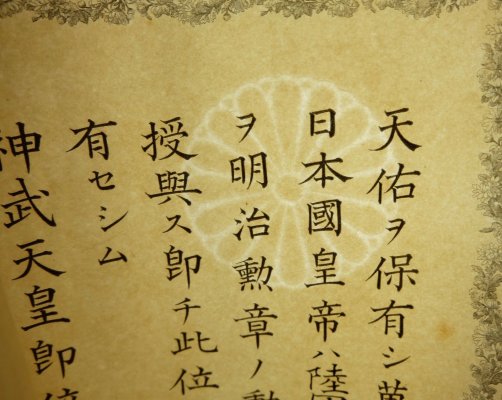 天佑ヲ保有シ萬
日本國皇帝ハ陸
ヲ明治勲章ノ勲
授與ス卽チ此位
有セシム
神武天皇卽位